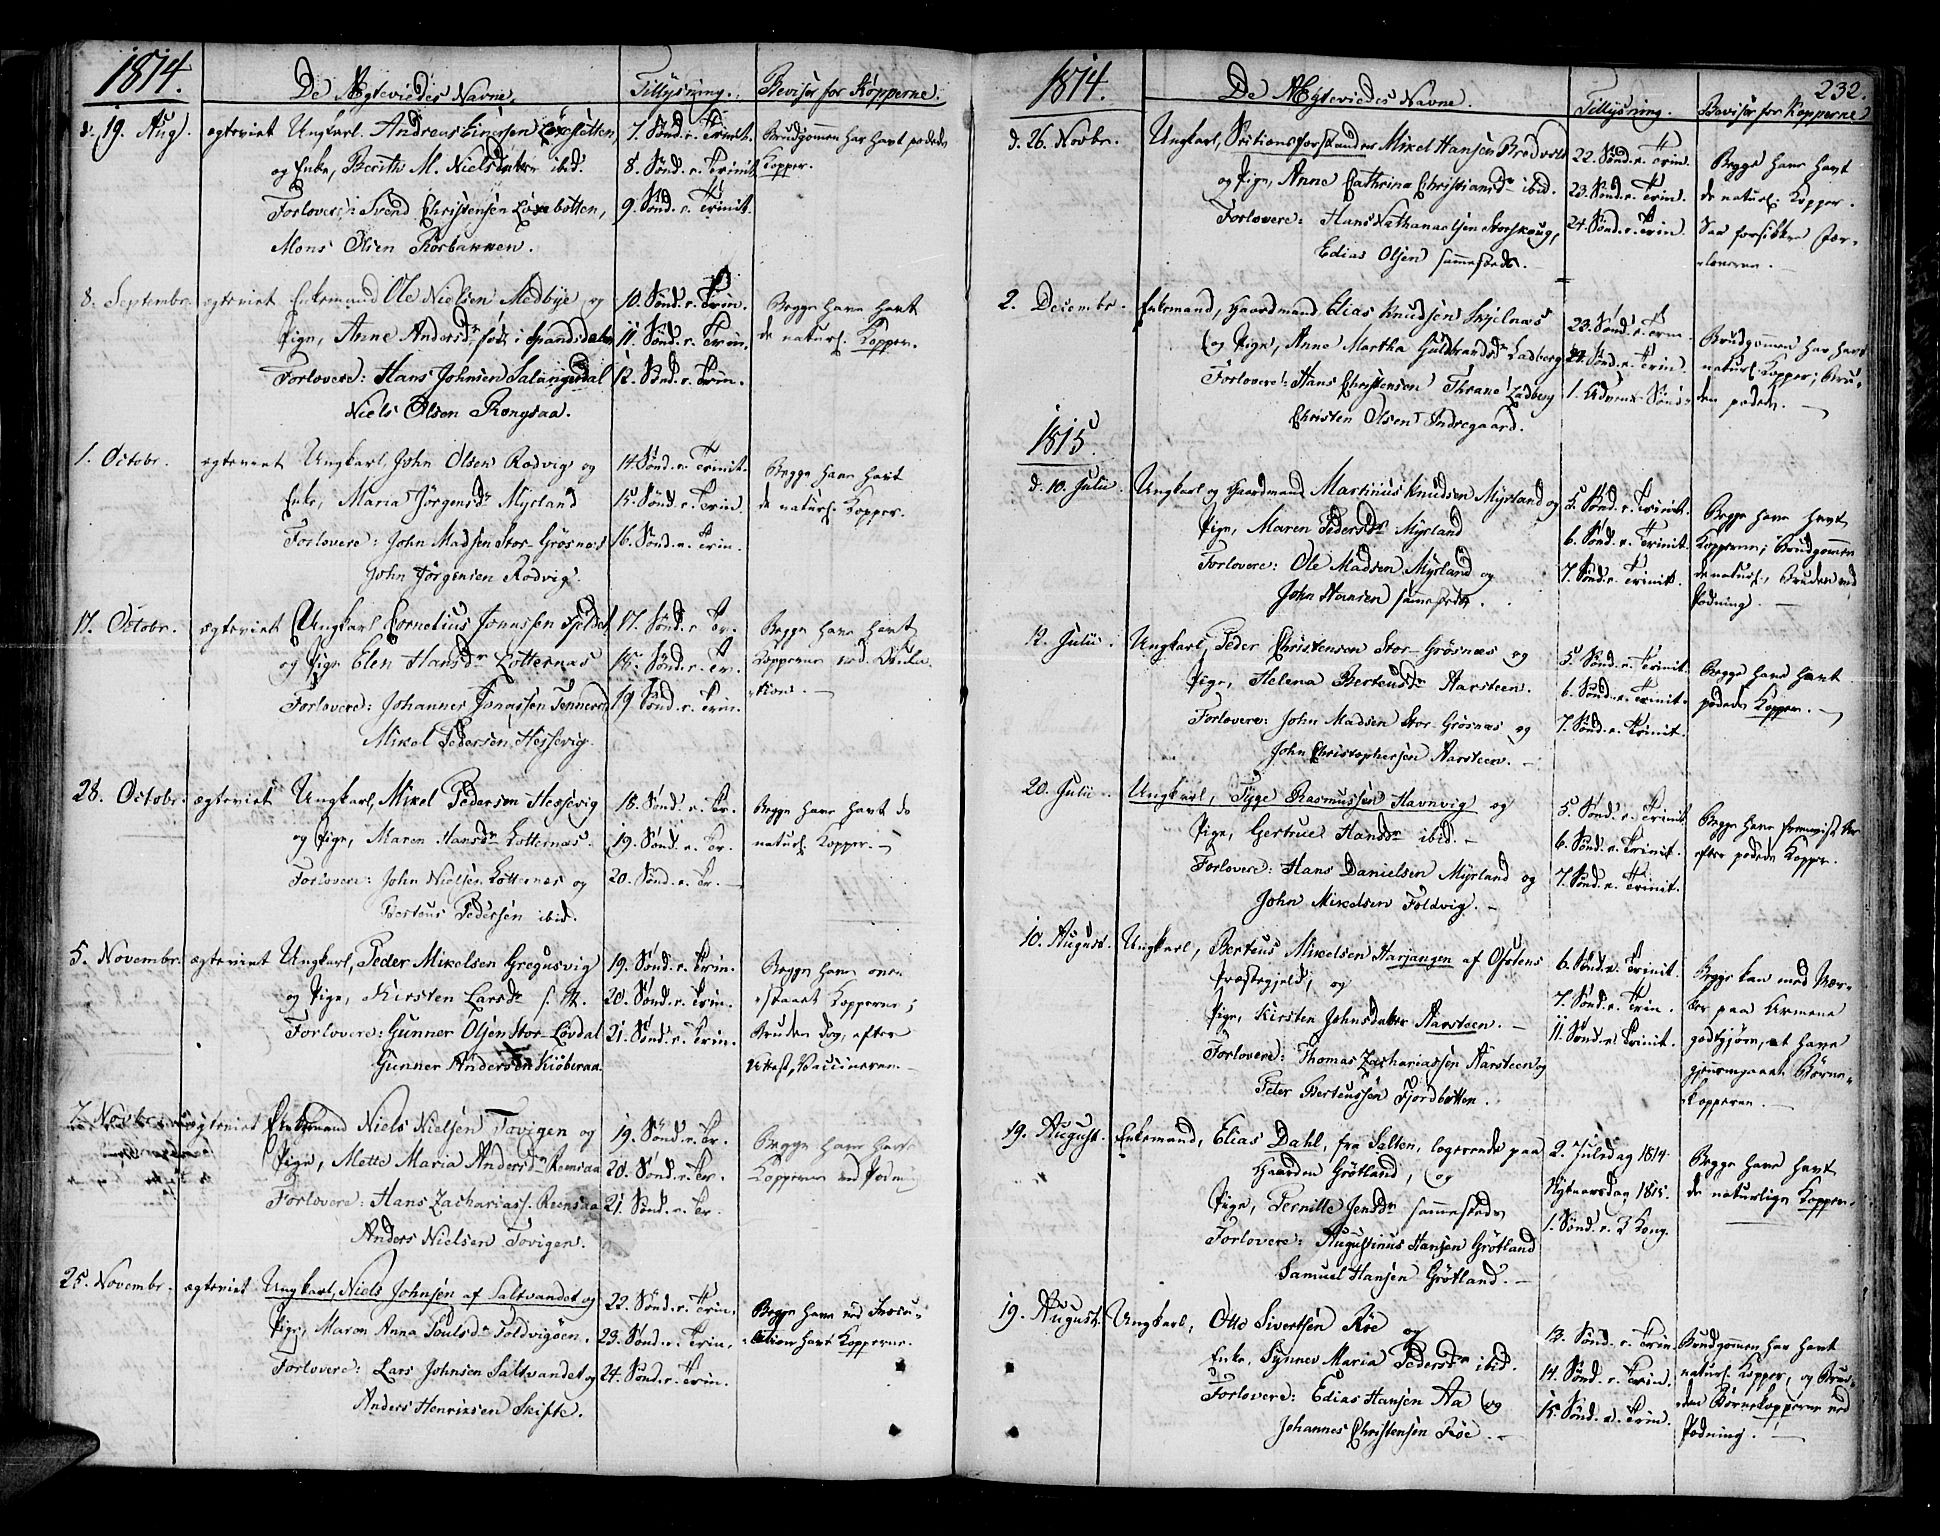 1814.
De Ægteviedes Navne.
Tillysning.
Beviser for Kopperne.
d. 19. Aug. ægteviet Ungkarl. Andreas Einersen Løxebotten,
og Enke, Berith M. Nielsdatter ibid.
Forlovere: Svend Christensen Løxebotten,
Mons Olsen Rørbakken.
7. Sønd. e. Trinit.
8. Sønd. e. Trinit.
9. Sønd. e. Trinit.
Brudgommen har havt podede
Kopper.
8. Septembr. ægteviet Enkemand Ole Nielsen Medbye, og
Pige, Anne Andersdr. fød i Spandsdalen
Forlovere: Hans Johnsen Salangsdal
Niels Olsen Rongsaa.
10. Sønd. e. Trin.
11. Sønd. e. Trin.
12. Sønd. e. Trin.
Begge have havt
de naturl. Kopper.
1. Octobr. ægteviet Ungkarl, John Olsen Rodvig og
Enke, Maria Jörgensdr Myrland
Forlovere: John Madsen Stor-Grösnæs
John Jörgensen Rodvig.
14. Sønd. e. Trinit.
15. Sønd. e. Trin.
16. Sønd. e. Trin.
Begge have havt
de naturl. Kopper.
17. Octobr. ægteviet Ungkarl Cornelius Jonassen
og Pige Elen Hansdr Lotternæs
Forlovere: Johannes Jonassen Tennevig
Mikel Pedersen Hessevig.
17. Sønd. e. Tr.
18. Sønd. e. Tr.
19. Sønd. e. Trin.
Begge have havt
Kopperne ved
28. Octobr. ægteviet Ungkarl, Mikel Pedersen Hessevig
og Pige, Maren Hansdr Lotternæs.
Forlovere: John Nielsen Lotternæs og
Berteus Pedersen ibid.
18. Sønd. e. Tr.
19. Sønd. e. Tr.
20. Sønd. e. Tr.
Begge have havt de
naturl. Kopper.
5. Novembr. ægteviet Ungkarl, Peder Mikelsen Gregusvig
og Pige, Kirsten Larsdr
Forlovere: Gunner Olsen Stor-Lövdal
Gunner Andersen Kiöberaa.
19. Sønd. e. Trin.
20. Sønd. e. Trin.
21. Sønd. e. Trin.
Begge have over-
staaet Kopperne;
Bruden dog, efter
Attest, Vaccinerne.
7. Novbr. ægteviet Enkemand Niels Nielsen Tovigen og
Pige, Mette Maria Andersdr Reensaa
Forlovere: Hans Zachariass. Reensaa
Anders Nielsen Tovigen.
19. Sønd. e. Tr.
20. Sønd. e. Tr.
21. Sønd. e. Tr.
Begge have havt
Kopperne ved Podning
25. Novembr. ægteviet Ungkarl, Niels Johnsen af Saltvandet og
Pige, Maren Anna Poulsdr Foldvigöen.
Forlovere: Lars Johnsen Saltvandet og
Anders Henriksen Skifte.
22. Sønd. e. Trin.
23. Sønd. e. Trin.
24. Sønd. e. Trin.
Begge have ved Inocu-
lation havt Kopperne.
1814.
De Ægteviedes Navne.
Tillysning.
232.
Beviser for Kopperne
d. 26. Novbr. Ungkarl, Mikel Hansen Bredvold
og Pige, Anne Cathrina Christiansdr ibid.
Forlovere: Hans Nathanaelsen Storskoug,
Edias Olsen sammesteds.
22. Sønd. e. Trin.
23. Sønd. e. Trin.
24. Sønd. e. Trin.
Begge have havt
de naturl. Kopper.
Saa forsikkre For-
loverne.
2. Decembr. Enkemand, Gaardmand Elias Knudsen Skielnæs
og Pige, Anne Martha Guldbrandsdr Ladberg
Forlovere: Hans Christensen Thrane Ladberg
Christen Olsen Indregaard.
23. Sønd. e. Trin.
24. Sønd. e. Trin.
1. Advent-Sønd.
Brudgommen har havt
naturl. Kopper; Bru-
den podede.
1815.
d. 10. Julii. Ungkarl og Gaardmand Martinus Knudsen Myrland og
Pige, Maren Pedersdr Myrland
Forlovere: Ole Madsen Myrland og
John Hansen sammesteds.
5. Sønd. e. Trinit.
6. Sønd. e. Trinit.
7. Sønd. e. Trinit.
Begge have havt
Kopperne; Brudgommen
de naturl., Bruden ved
Podning.
12. Julii. Ungkarl, Peder Christensen Stor-Grösnæs og
Pige, Helena Berteusdr Aarsteen.
Forlovere: John Madsen Stor-Grösnæs og
John Christophersen Aarsteen.
5. Sønd. e. Trinit.
6. Sønd. e. Trinit.
7. Sønd. e. Trinit.
Begge have havt
podede Kopper.
20. Julii. Ungkarl, Tyge Rasmussen Havnvig og
Pige, Gertrue Hansdr ibid.
Forlovere: Hans Danielsen Myrland og
John Mikelsen Foldvig.
5. Sønd. e. Trinit.
6. Sønd. e. Trinit.
7. Sønd. e. Trinit.
Begge have fremvist Ar
efter podede Kopper.
10. August. Ungkarl, Berteus Mikelsen Harjangen af Ofotens
Præstegield, og
Pige, Kirsten Johnsdatter Aarsteen.
Forlovere: Thomas Zachariassen Aarsteen og
Peter Berteussen Fjordbotten.
6. Sønd. e. Trinit.
7. Sønd. e. Trin.
11. Sønd. e. Trinit.
Begge kan med Mær-
ker paa Armene
godtgjøre, at have
gjennemgaaet Børne-
kopperne.
19. August. Enkemand, Elias Dahl, fra Salten, logerende paa
Gaarden Grötland, og
Pige, Pernille Jensdr sammesteds
Forlovere: Augustinus Hansen Grötland
Samuel Hansen Grötland.
2. Juledag 1814
Nytaarsdag 1815.
1. Sønd. e. 3 Kong.
Begge have havt
de naturlige Kopper.
19. August. Ungkarl, Otto Sivertsen Röe
og
Enke, Synnev Maria Pedersdr ibid.
Forlovere: Edias Hansen Aa og
Johannes Christensen Röe.
13. Sønd. e. Trin.
14. Sønd. e. Trin.
15. Sønd. e. Trin.
Brudgommen har havt
naturl. Kopper, og Bru-
den Børnekopperne ved
Podning.